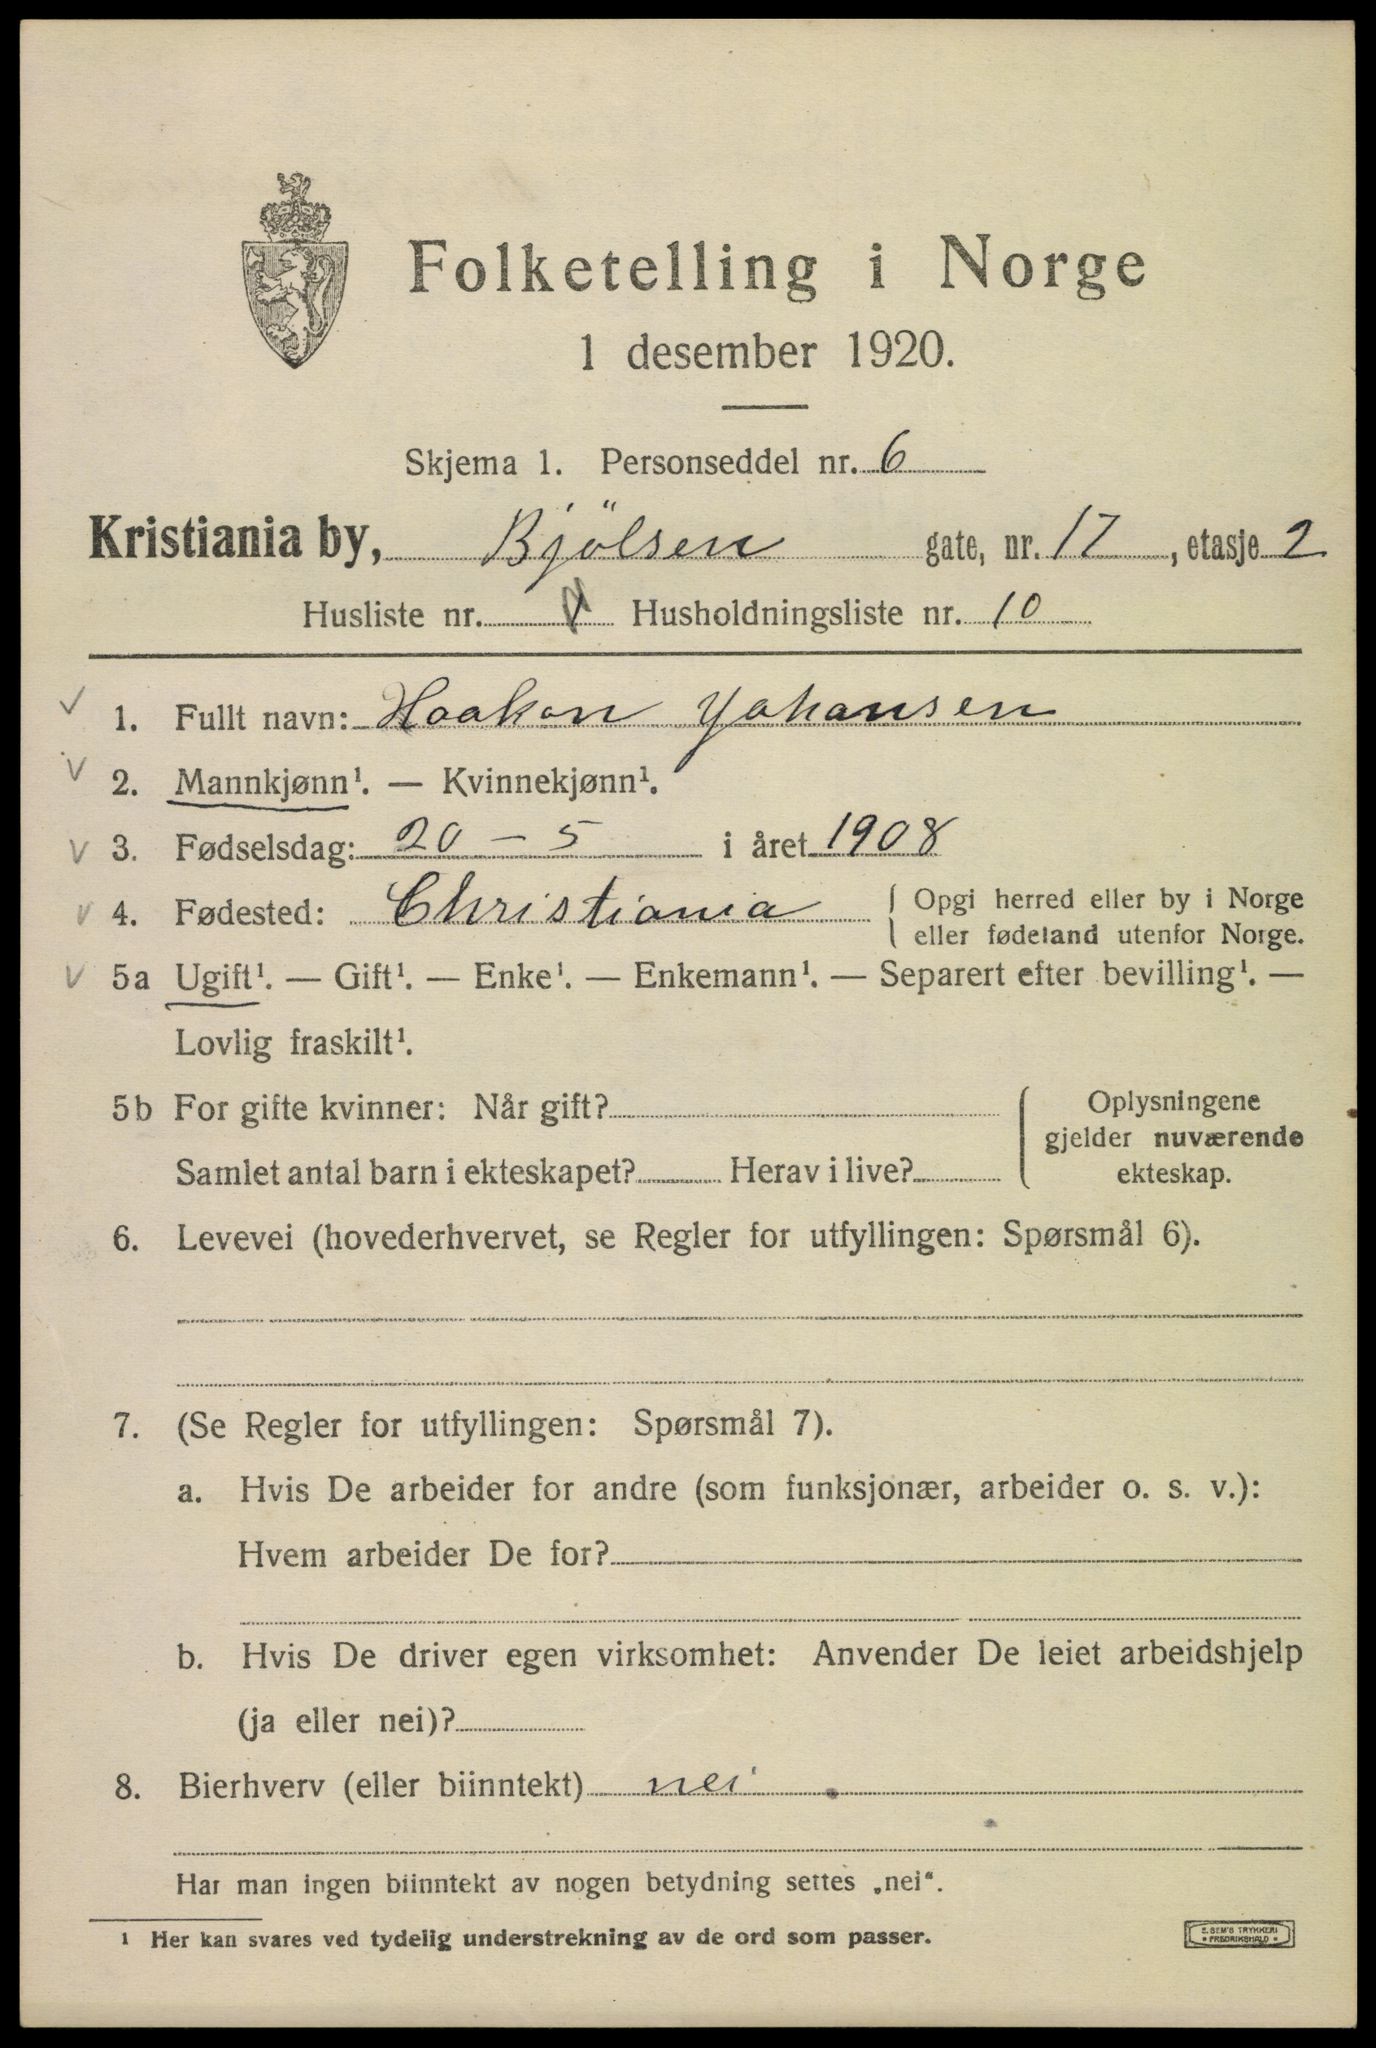 Folketelling i Norge
1 desember 1920.
Skjema 1. Personseddel nr. 6
Kristiania by, Bjölsen gate, nr. 17, etasje 2
Husliste nr. 1 Husholdningsliste nr. 10
1. Fullt navn: Haakon Johansen
2. Mannkjønn¹. — Kvinnekjønn¹.
3. Fødselsdag: 20 – 5 i året 1908
4. Fødested: Christiania { Opgi herred eller by i Norge
eller fødeland utenfor Norge.
5a Ugift¹. — Gift¹. — Enke¹. — Enkemann¹. — Separert efter bevilling¹. —
Lovlig fraskilt¹.
5b For gifte kvinner: Når gift?
Samlet antal barn i ekteskapet? Herav i live?
Oplysningene
gjelder nuværende
ekteskap.
6. Levevei (hovederhvervet, se Regler for utfyllingen: Spørsmål 6).
7. (Se Regler for utfyllingen: Spørsmål 7).
a. Hvis De arbeider for andre (som funksjonær, arbeider o. s. v.):
Hvem arbeider De for?
b. Hvis De driver egen virksomhet: Anvender De leiet arbeidshjelp
(ja eller nei)?
8. Bierhverv (eller biinntekt) nei
Har man ingen biinntekt av nogen betydning settes „nei“.
¹ Her kan svares ved tydelig understrekning av de ord som passer.
E. SEM'S TRYKKERI
* FREDRIKSHALD *